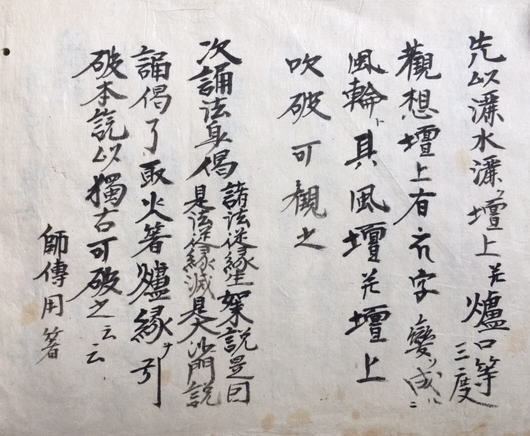 先以灑水灑壇上并爐口等三度
觀想壇上有𑖮字變成
風輪ト其風壇并壇上
吹破可觀之
次誦法身偈 諸法従縁生 如来説是因
是法従縁滅 是大沙門説
誦偈了取火箸爐縁ヲ引
破本説以獨古可破之云云
師傳用箸